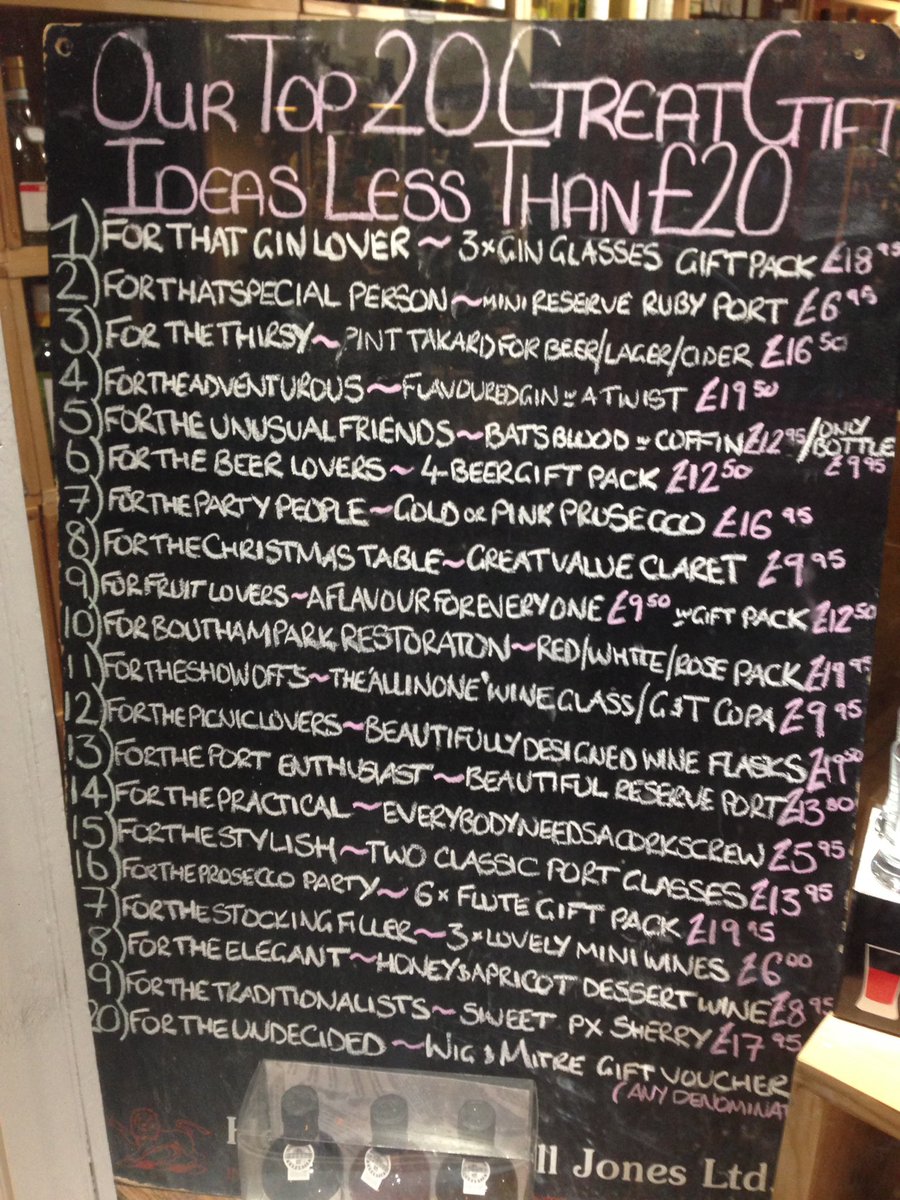 OUR TOP 20 GREAT GIFT
IDEAS LESS THAN £20
1) FOR THAT GIN LOVER ~ 3 x GIN GLASSES GIFT PACK £18.95
2) FOR THAT SPECIAL PERSON ~ MINI RESERVE RUBY PORT £6.95
3) FOR THE THIRSY ~ PINT TAKARD FOR BEER/LAGER/CIDER £16.50
4) FOR THE ADVENTUROUS ~ FLAVOURED GIN w A TWIST £19.50
5) FOR THE UNUSUAL FRIENDS ~ BATS BLOOD w COFFIN £12.95/ONLY BOTTLE £9.95
6) FOR THE BEER LOVERS ~ 4-BEER GIFT PACK £12.50
7) FOR THE PARTY PEOPLE ~ GOLD or PINK PRUSECCO £16.95
8) FOR THE CHRISTMAS TABLE ~ GREAT VALUE CLARET £9.95
9) FOR FRUIT LOVERS ~ A FLAVOUR FOR EVERYONE £9.50 w GIFT PACK £12.50
10) FOR BOUTHAM PARK RESTORATON ~ RED/WHITE/ROSE PACK £19.95
11) FOR THE SHOW OFF'S ~ THE 'ALL IN ONE' WINE GLASS/G&T COPA £9.95
12) FOR THE PICNIC LOVERS ~ BEAUTIFULLY DESIGNED WINE FLASKS £19.50
13) FOR THE PORT ENTHUSIAST ~ BEAUTIFUL RESERVE PORT £13.80
14) FOR THE PRACTICAL ~ EVERYBODY NEEDS A CORKSCREW £5.95
15) FOR THE STYLISH ~ TWO CLASSIC PORT GLASSES £13.95
16) FOR THE PROSECCO PARTY ~ 6 x FLUTE GIFT PACK £19.95
7) FOR THE STOCKING FILLER ~ 3 x LOVELY MINI WINES £6.00
8) FOR THE ELEGANT ~ HONEY & APRICOT DESSERT WINE £8.95
9) FOR THE TRADITIONALISTS ~ SWEET PX SHERRY £17.95
20) FOR THE UNDECIDED ~ WIG & MITRE GIFT VOUCHER
(ANY DENOMINAT
ll Jones Ltd.